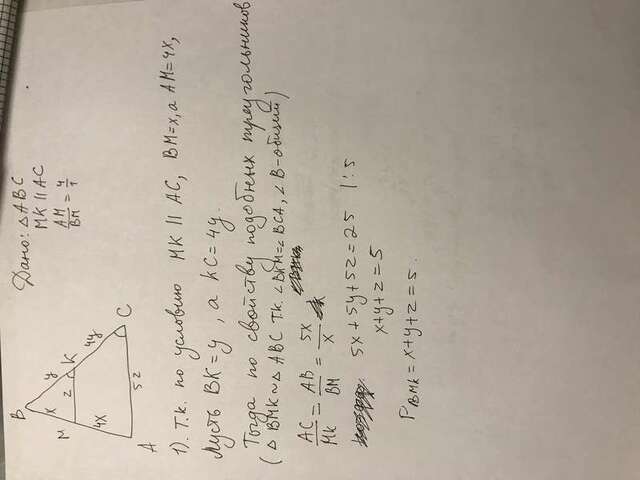 Дано: △ABC
MK || AC
AM/BM = 4/1
B
x
y
M
z
K
4x
4y
5z
A
C
1). Т.к. по условию MK || AC, BM=x, а AM=4x,
Пусть BK=y, а KC=4y.
Тогда по свойству подобных треугольников
(△ BMK ~ △ ABC т.к. ∠BKM=∠BCA, ∠B-общий)
AC/MK = AB/BM = 5x/x
5x+5y+5z=25 | :5
x+y+z=5
P BMK = x+y+z=5.